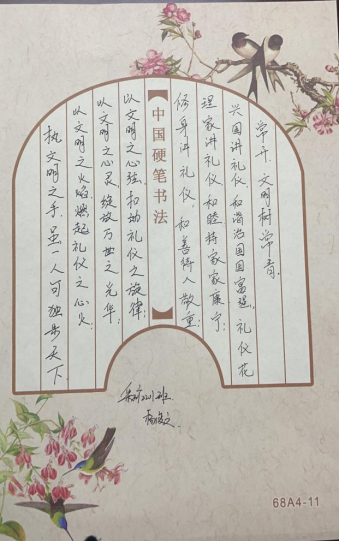 执文明之手,虽一人可独步天下.
以文明之火焰,燃起礼仪之心火;
以文明之心灵,绽放万世之光华;
以文明之心弦,扣动礼仪之旋律;
中国硬笔书法
修身讲礼仪,和善待人敬重;
理家讲礼仪,和睦持家家康宁;
兴国讲礼仪,和谐治国国富强,礼仪花
常开,文明树常青.
2201班
68A4-11